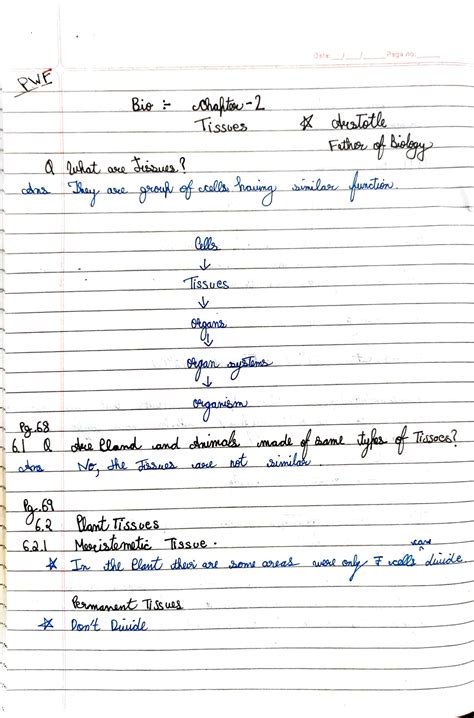 Date: __/__/__ Page no: ____
PWE
Bio :- Chapter - 2
Tissues
☆ Aristotle
Father of Biology
Q What are Tissues?
Ans They are group of cells having similar function.
Cells
↓
Tissues
↓
Organs
↓
Organ systems
↓
Organism
Pg.68
6.1 Q Are Pland and Animals made of same types of Tissoes?
Ans No, the Tissues are not similar.
Pg.69
6.2 Plant Tissues
6.2.1 Meristemetic Tissue.
can
☆ In the Plant their are some areas were only cells divide.
Permanent Tissues
☆ Don't Divide